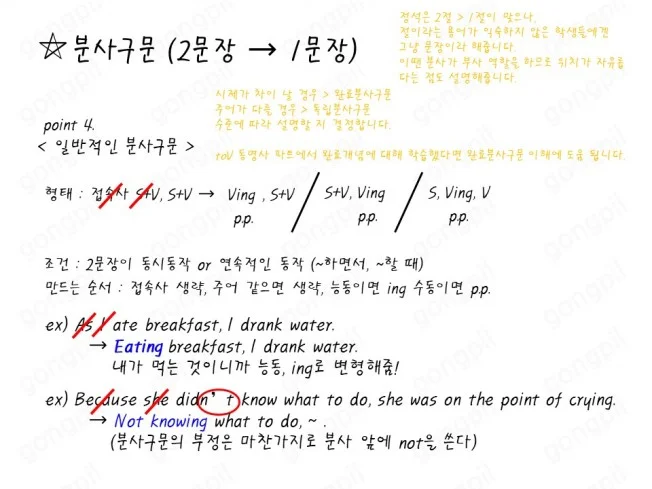 정석은 2절 > 1절이 맞으나,
절이라는 용어가 익숙하지 않은 학생들에겐
그냥 문장이라 해줍니다.
이땐 분사가 부사 역할을 하므로 위치가 자유롭
다는 점도 설명해줍니다.
☆ 분사구문 (2문장 → 1문장)
시제가 차이 날 경우 > 완료분사구문
주어가 다를 경우 > 독립분사구문
수준에 따라 설명할 지 결정합니다.
point 4.
< 일반적인 분사구문 >
toV 동명사 파트에서 완료개념에 대해 학습했다면 완료분사구문 이해에 도움 됩니다.
형태 : 접속사 S+V, S+V → Ving , S+V / S+V, Ving / S, Ving, V
p.p. p.p. p.p.
조건 : 2문장이 동시동작 or 연속적인 동작 (~하면서, ~할 때)
만드는 순서 : 접속사 생략, 주어 같으면 생략, 능동이면 ing 수동이면 p.p.
ex) As I ate breakfast, I drank water.
→ Eating breakfast, I drank water.
내가 먹는 것이니까 능동, ing로 변형해줌!
ex) Because she didn't know what to do, she was on the point of crying.
→ Not knowing what to do, ~ .
(분사구문의 부정은 마찬가지로 분사 앞에 not을 쓴다)
gongpil